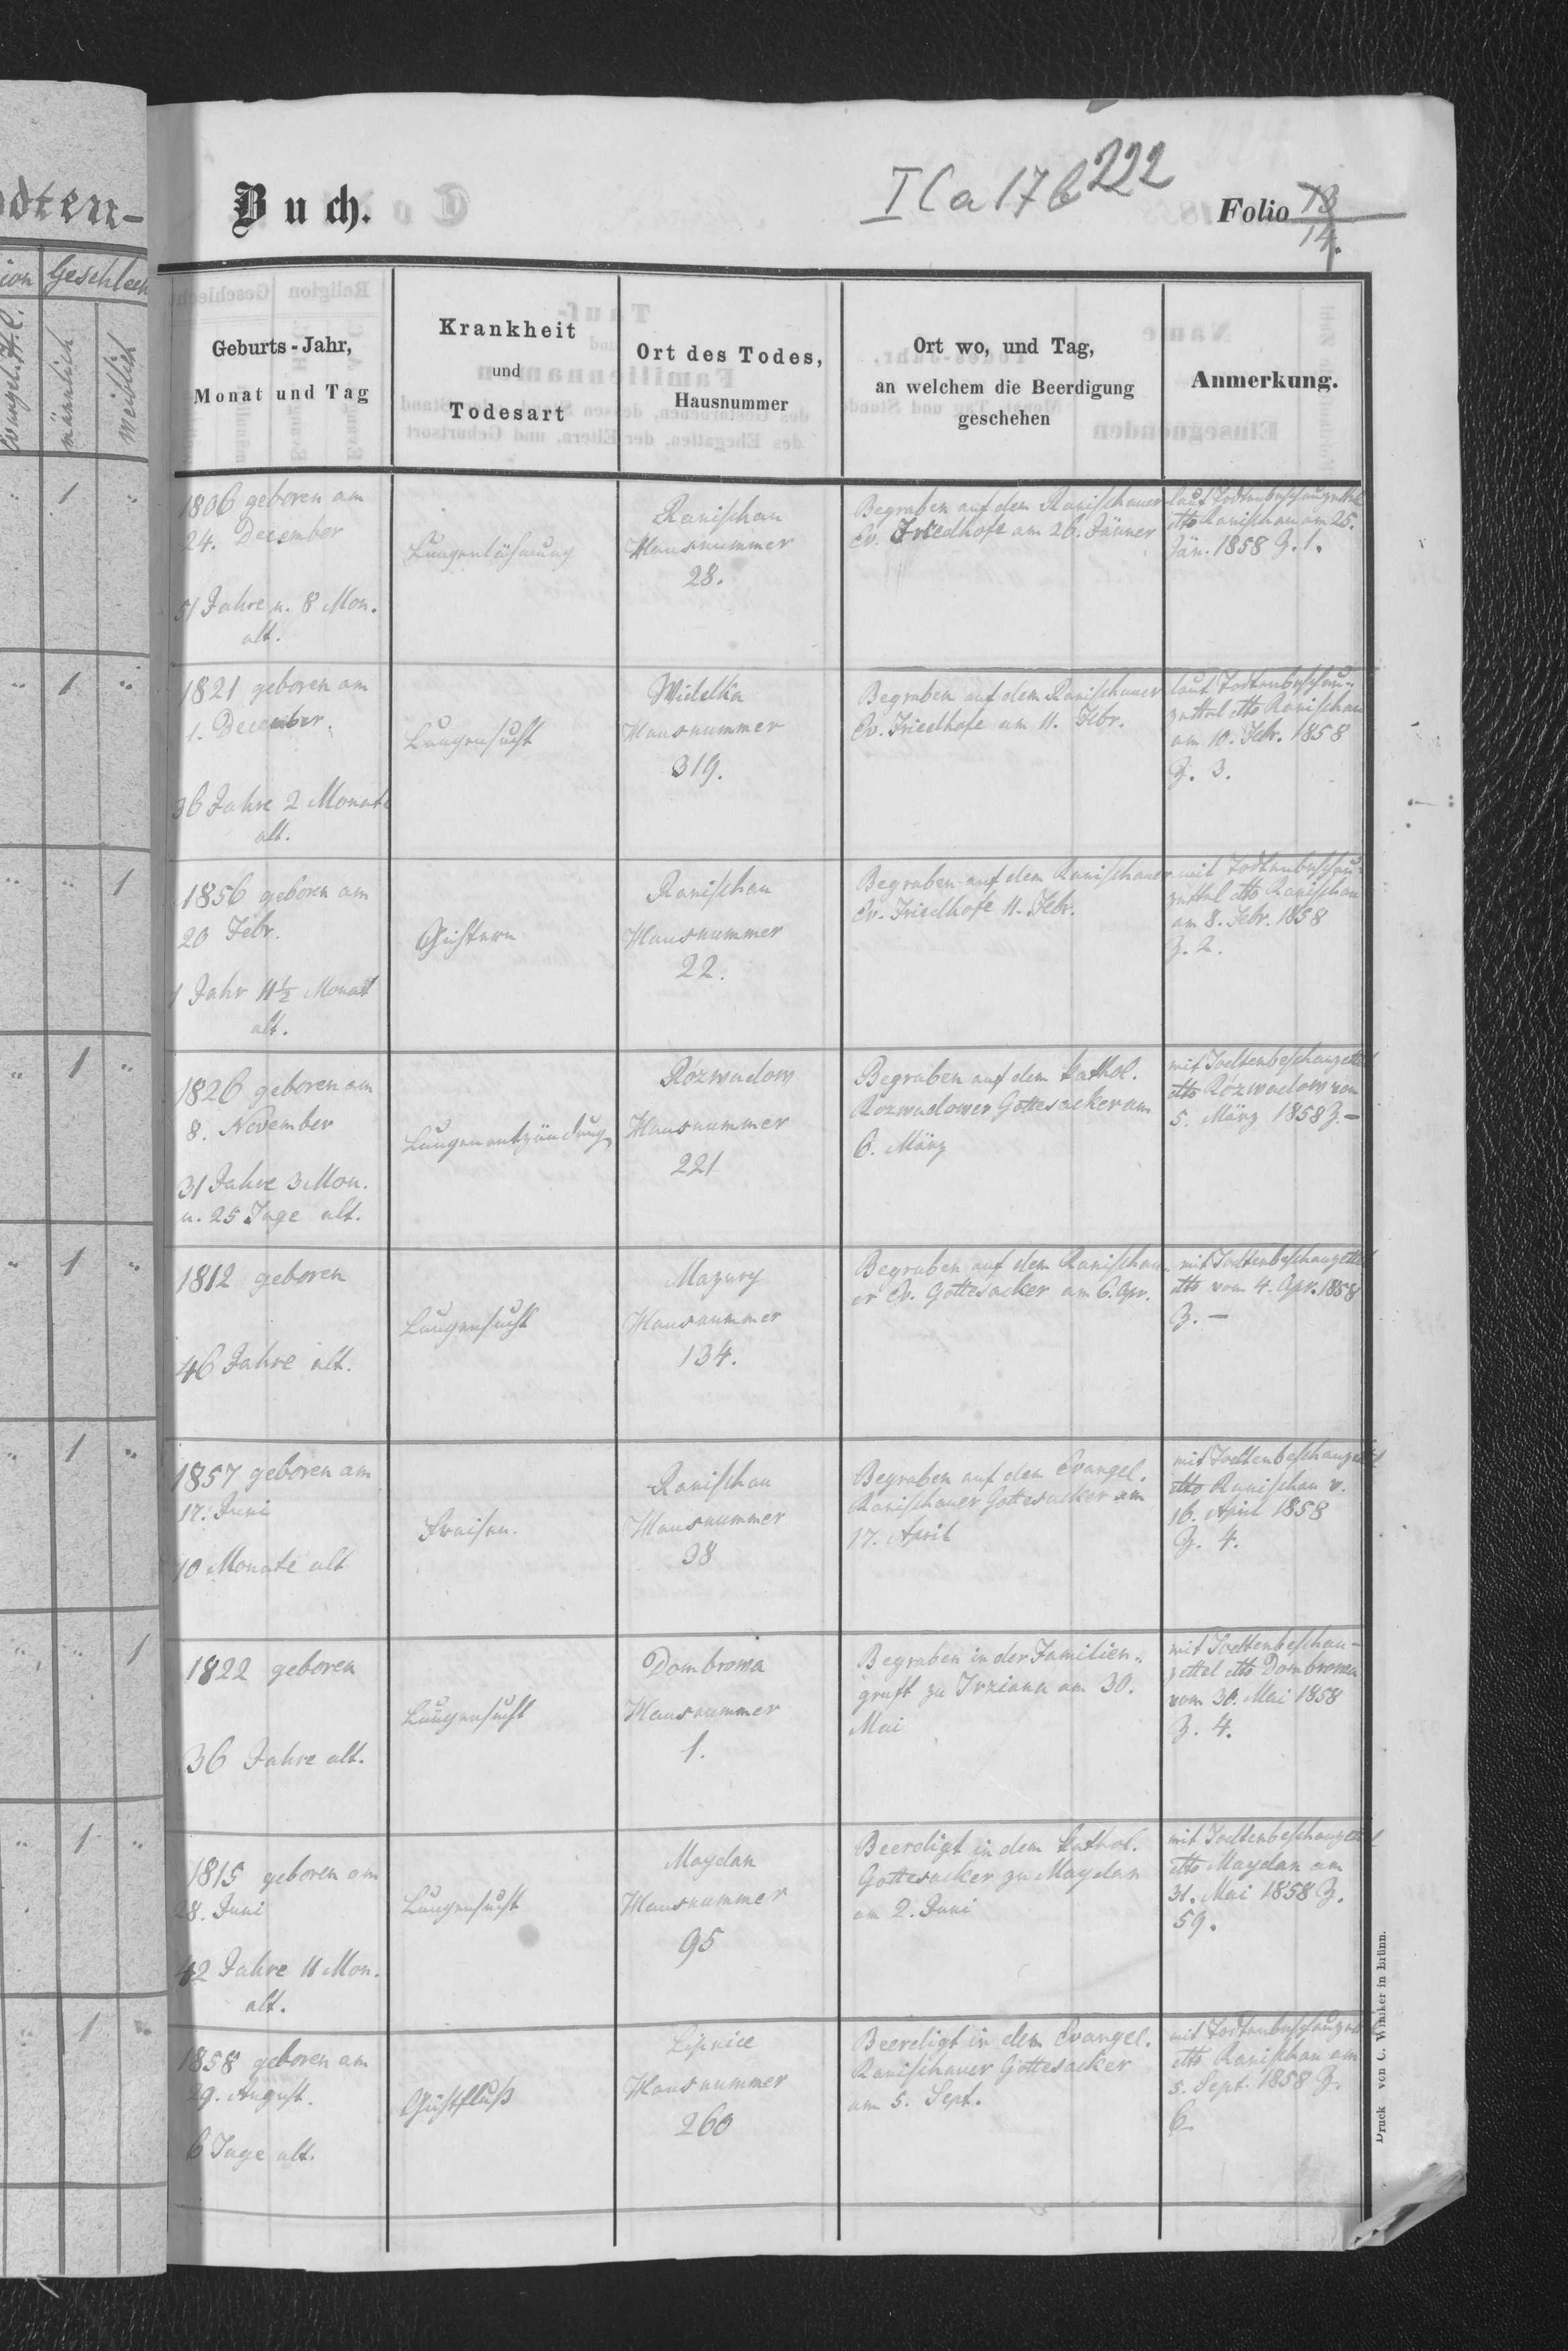 odten-
ion Geschlech
Evangel. H. C.
männlich
weiblich
Buch.
I C a 17 b 222
Folio 13
14.
Geburts-Jahr,
Monat und Tag
Krankheit
und
Todesart
Ort des Todes,
Hausnummer
Ort wo, und Tag,
an welchem die Beerdigung
geschehen
Anmerkung.
" 1 "
1806 geboren am
24. December
51 Jahre u. 8 Mon.
alt.
Lungenlähmung
Ranischau
Hausnummer
28.
Begraben auf dem Ranischauer
Ev. Friedhofe am 26. Jänner
laut Todtenbeschauzettel
dtto Ranischau am 25.
Jän. 1858 Z. 1.
" 1 "
1821 geboren am
1. December.
36 Jahre 2 Monate
alt.
Lungensucht
Widelka
Hausnummer
319.
Begraben auf dem Ranischauer
Ev. Friedhofe am 11. Febr.
laut Todtenbeschau-
zettel dtto Ranischau
am 10. Febr. 1858
Z. 3.
" " 1
1856 geboren am
20 Febr.
1 Jahr 11½ Monat
alt.
Ranischau
Hausnummer
22.
Begraben auf dem Ranischauer
Ev. Friedhofe 11. Febr.
mit Todtenbeschau-
zettel dtto Ranischau
am 8. Febr. 1858
Z. 2.
" 1 "
1826 geboren am
8. November
31 Jahre 3 Mon.
u. 25 Tage alt.
Lungenentzündung
Rozwadow
Hausnummer
221
Begraben auf dem kathol.
Rozwadower Gottesacker am
6. März
mit Todtenbeschauzettel
dtto Rozwadow vom
5. März 1858 Z. -
" 1 "
1812 geboren
46 Jahre alt.
Lungensucht
Mazury
Hausnummer
134.
Begraben auf dem Ranischau-
er Ev. Gottesacker am 6. Apr.
mit Todtenbeschauzettel
dtto vom 4. Apr. 1858
Z. -
" 1 "
1857 geboren am
17. Juni
10 Monate alt
Fraisen.
Ranischau
Hausnummer
38
Begraben auf dem Evangel.
Ranischauer Gottesacker am
17. April
mit Todtenbeschauzettel
dtto Ranischau v.
16. April 1858
Z. 4.
" " 1
1822 geboren
36 Jahre alt.
Lungensucht
Dombrowa
Hausnummer
1.
Begraben in der Familien-
gruft zu Trziana am 30.
Mai
mit Todtenbeschau-
zettel dtto Dombrowa
vom 30. Mai 1858
Z. 4.
" 1 "
1815 geboren am
28. Juni
42 Jahre 11 Mon.
alt.
Lungensucht
Maydan
Hausnummer
95
Beerdigt in dem kathol.
Gottesacker zu Maydan
am 2. Juni
mit Todtenbeschauzettel
dtto Maydan am
31. Mai 1858 Z.
59.
" 1 "
1858 geboren am
29. August.
6 Tage alt.
Lipnice
Hausnummer
260
Beerdigt in dem Evangel.
Ranischauer Gottesacker
am 5. Sept.
mit Todtenbeschauzettel
dtto Ranischau am
5. Sept. 1858 Z.
6.
Druck von C. Winiker in Brünn.